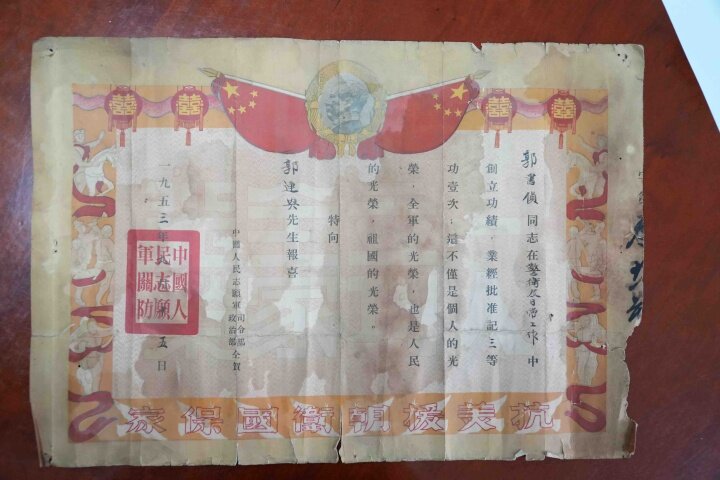 郭舊偵同志在警衛及日常工作中
創立功績，業經批准記三等
功壹次；這不僅是個人的光
榮，全軍的光榮，也是人民
的光榮，祖國的光榮。
特向
郭連興先生報喜
中國人民志願軍司令部
政治部仝賀
一九五三年 五日
中國人
民志願
軍關防
抗美援朝衛國保家